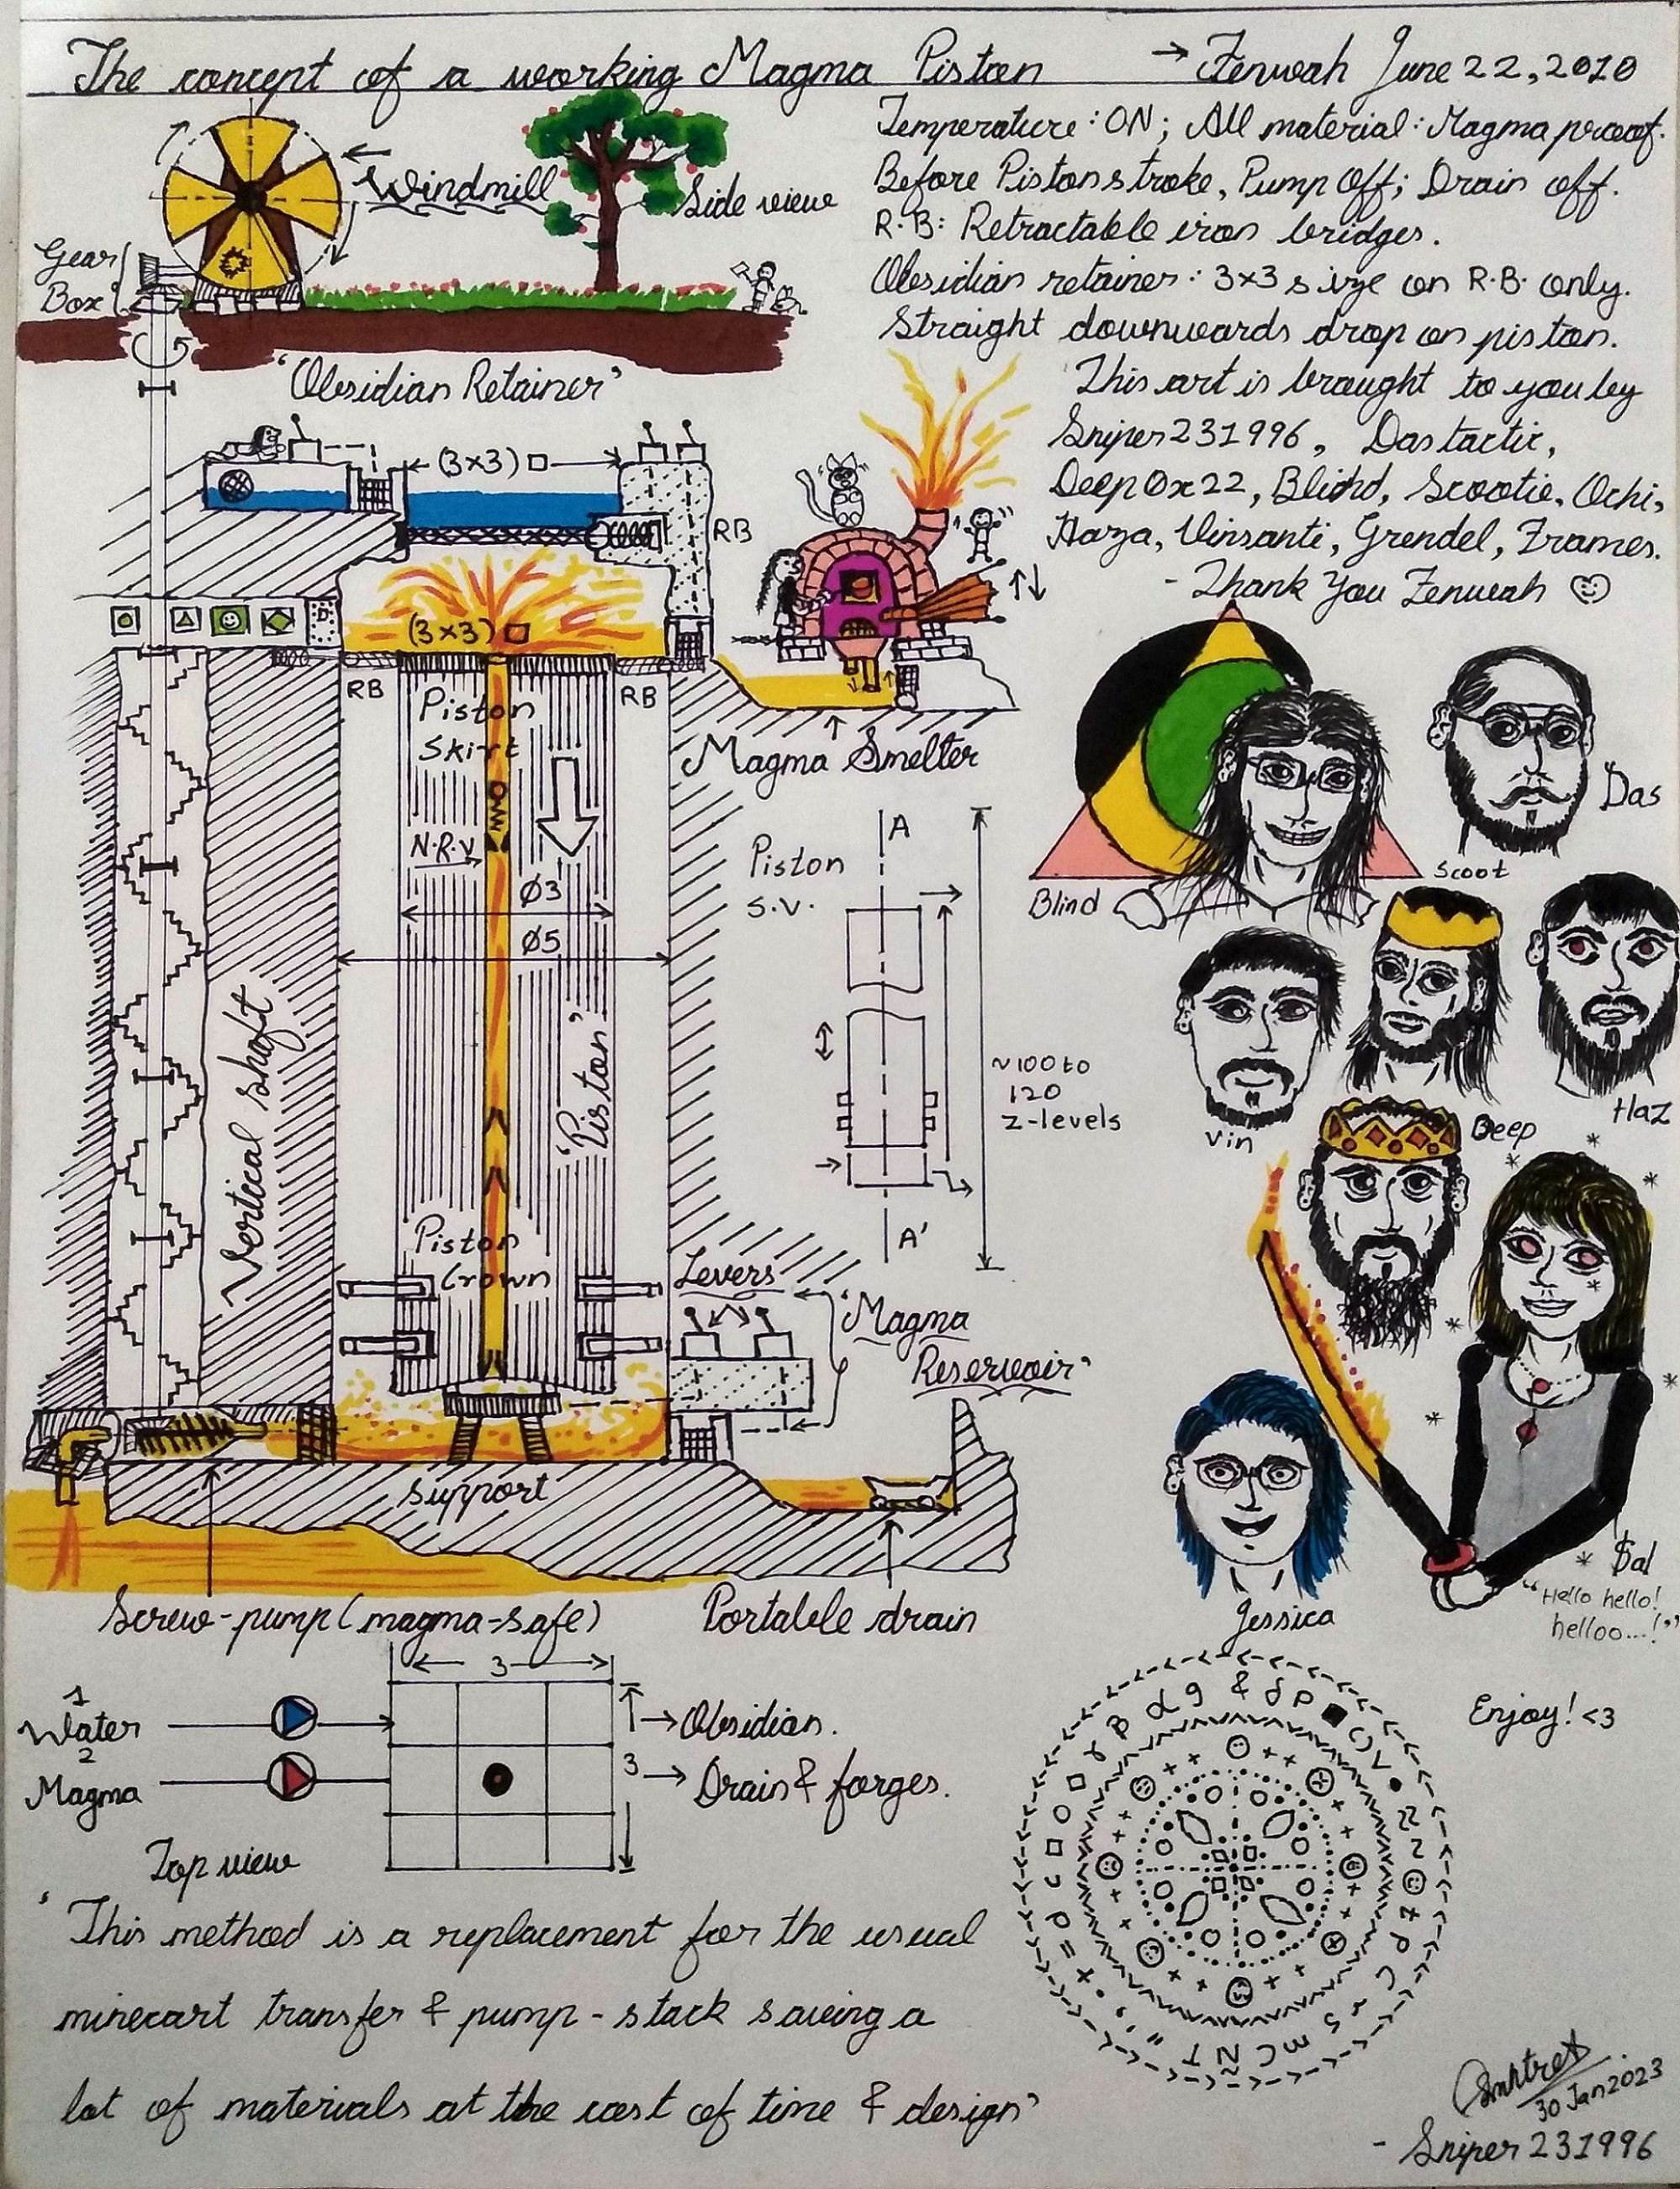 The concept of a working Magma Piston → Zenweah June 22, 2010
Temperature: ON; All material: Magma proof.
Before Piston stroke, Pump Off; Drain off.
R.B: Retractable iron bridges.
Obsidian retainer: 3x3 size on R.B. only.
Straight downwards drop on piston.
This art is brought to you by
Sniper231996, Dastactic,
DeepOx22, Blind, Scootie, Ochi,
Haza, Vinsanti, Grendel, Zrames.
- Thank You Zenweah
Windmill
Side view
Gear
Box
'Obsidian Retainer'
(3x3)
RB
(3x3)
RB
RB
Piston
Skirt
N.R.V
Ø3
Ø5
'Piston'
Vertical shaft
Piston
Crown
Magma Smelter
Piston
S.V.
A
~100 to
120
z-levels
A'
Levers
'Magma
Reservoir'
Support
Screw-pump (magma-safe)
Portable drain
Blind
Das
Scoot
Vin
Haz
Deep
Jessica
$al
"Hello hello!
helloo...!"
Enjoy! <3
3
1
Water
→ Obsidian.
2
Magma
3
→ Drain & forges.
Top view
'This method is a replacement for the usual
minecart transfer & pump-stack saving a
lot of materials at the cost of time & design'
30 Jan 2023
- Sniper 231996